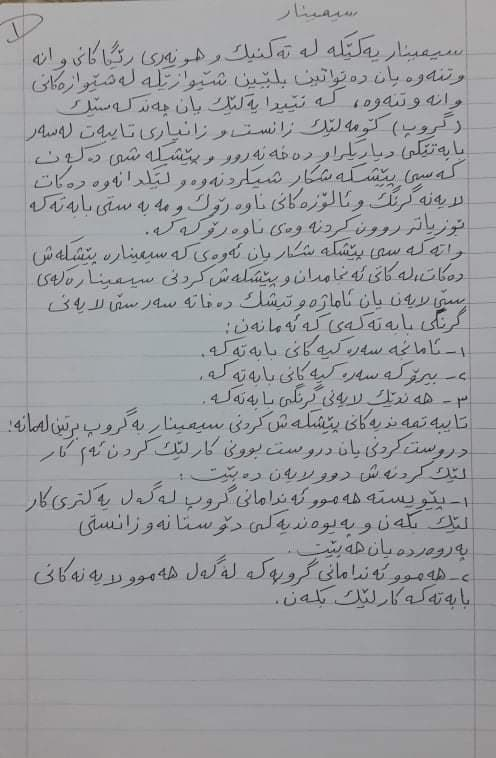 سیمینار
١
سیمینار یەکێکە لە تەکنیک و هونەری رێگاکانی وانە
وتنەوە یان دەتوانین بڵێین شێوازێکە لە شێوازەکانی
وانە وتنەوە، کە تێیدا یەکێک یان چەند کەسێک
(گروپ) کۆمەڵێک زانست و زانیاری تایبەت لەسەر
بابەتێکی دیاریکراو دەخەنەروو و پێشکەشی دەکەن
کەسی پێشکەشکار شیکردنەوە و لێکدانەوە دەکات
لایەنە گرنگ و ئاڵۆزەکانی ناوەرۆک و مەبەستی بابەتەکە
بۆ زیاتر روون کردنەوەی ناوەرۆکەکە.
واتە کەسی پێشکەشکار یان ئەوەی کە سیمینارە پێشکەش
دەکات، لەکاتی ئەنجامدان و پێشکەش کردنی سیمینارەکەی
سێ لایەن یان ئاماژە و تیشک دەخاتە سەر سێ لایەنی
گرنگی بابەتەکەی کە ئەمانەن:
١- ئامانجە سەرەکیەکانی بابەتەکە.
٢- بیرۆکە سەرەکیەکانی بابەتەکە.
٣- هەندێک لایەنی گرنگی بابەتەکە.
تایبەتمەندیەکانی پێشکەش کردنی سیمینار بە گروپ برتین لەمانە:
دروست کردنی یان دروست بوونی کارلێک کردن ئەم کار
لێک کردنەش دوو لایەن دەبێت:
١- پێویستە هەموو ئەندامانی گروپ لەگەل یەکتری کار
لێک بکەن و پەیوەندیەکی دۆستانە و زانستی
پەروەردەیان هەبێت.
٢- هەموو ئەندامانی گروپەکە لەگەل هەموو لایەنەکانی
بابەتەکە کارلێک بکەن.